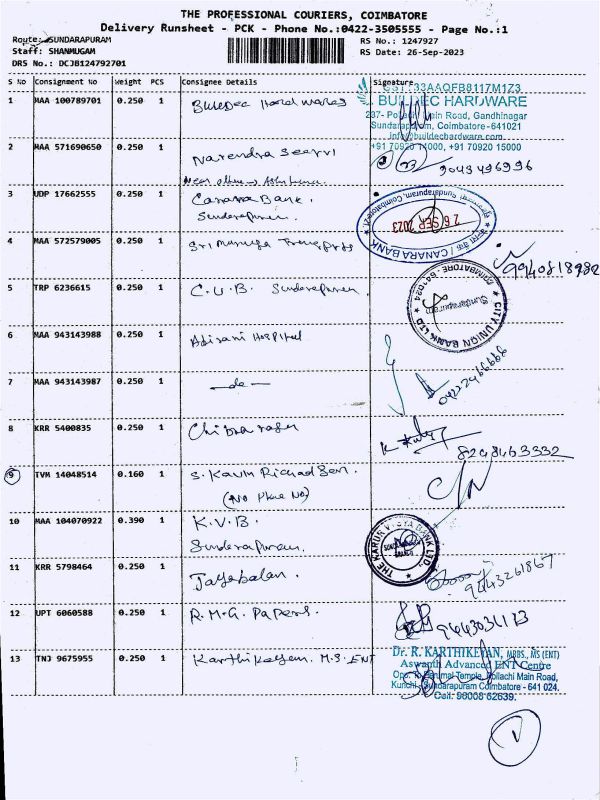 THE PROFESSIONAL COURIERS, COIMBATORE
Delivery Runsheet - PCK - Phone No.:0422-3505555 - Page No.:1
Route: SUNDARAPURAM
RS No.: 1247927
Staff: SHANMUGAM
RS Date: 26-Sep-2023
DRS No.: DCJB124792701
S No Consignment No Weight PCS Consignee Details Signature
1 MAA 100789701 0.250 1 Buildec Hardwares
GST:33AAQFB8117M1Z3
BUILDEC HARDWARE
Main Road, Gandhinagar
Sundarapuram, Coimbatore-641021
info@buildechardware.com
+91 70920 14000, +91 70920 15000
2 MAA 571690650 0.250 1 Narendra Seervi
9043496996
3 UDP 17662555 0.250 1 Canara Bank.
Sundarapuram.
26 SEP 2023
CANARA BANK
Sundarapuram, Coimbatore
4 MAA 572579005 0.250 1 Sri Muruga
5 TRP 6236615 0.250 1 C.U.B. Sundarapuram.
CITY UNION BANK LTD.
Sundarapuram
COIMBATORE - 641024
6 MAA 943143988 0.250 1 Hospital
7 MAA 943143987 0.250 1 —do—
8 KRR 5400835 0.250 1
8248463332
9 TVM 14048514 0.160 1 S. Kavin Richardson.
(No Phone No)
10 MAA 104070922 0.390 1 K.V.B.
Sundarapuram.
THE KARUR VYSYA BANK LTD.
11 KRR 5798464 0.250 1 Jayabalan.
9443261867
12 UPT 6060588 0.250 1 R.M.G. Papers.
13 TNJ 9675955 0.250 1 Karthikeyan. M.S. ENT
Dr. R. KARTHIKEYAN, MBBS., MS (ENT)
Aswanth Advanced ENT Centre
Opp. Perumal Temple, Pollachi Main Road,
Kurichi, Sundarapuram Coimbatore - 641 024.
Cell: 96008 62639.
1